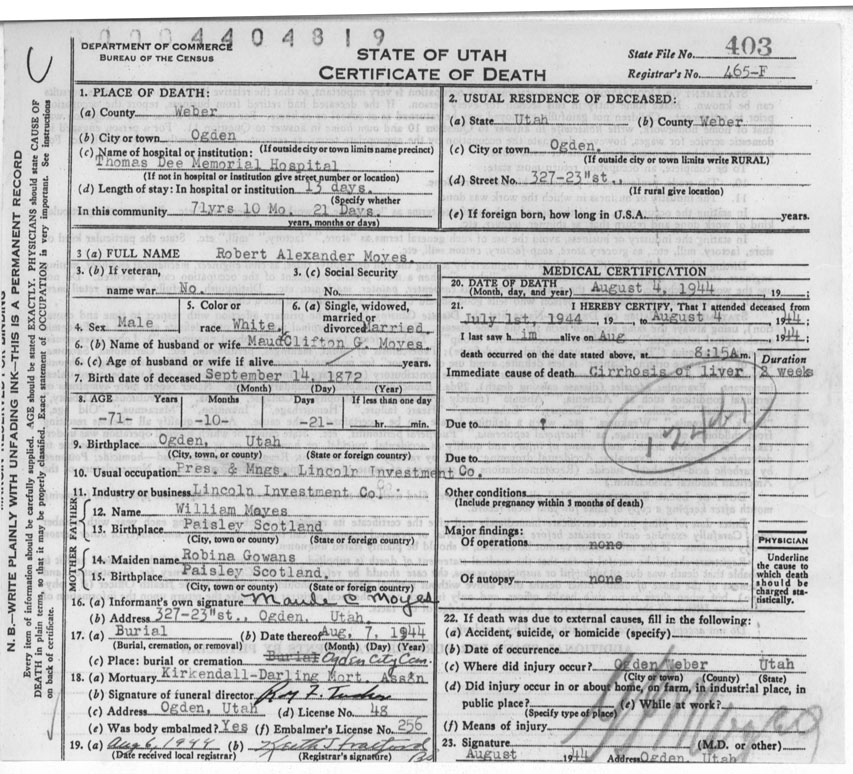 0004404819
DEPARTMENT OF COMMERCE
BUREAU OF THE CENSUS
STATE OF UTAH
CERTIFICATE OF DEATH
State File No. 403
Registrar's No. 465-F
N. B.—WRITE PLAINLY WITH UNFADING INK—THIS IS A PERMANENT RECORD
Every item of information should be carefully supplied. AGE should be stated EXACTLY. PHYSICIANS should state CAUSE OF
DEATH in plain terms, so that it may be properly classified. Exact statement of OCCUPATION is very important. See instructions
on back of certificate.
1. PLACE OF DEATH:
(a) County Weber
(b) City or town Ogden
(If outside city or town limits name precinct)
(c) Name of hospital or institution:
Thomas Dee Memorial Hospital
(If not in hospital or institution give street number or location)
(d) Length of stay: In hospital or institution 13 days.
(Specify whether
In this community 71yrs 10 Mo. 21 Days.
years, months or days)
2. USUAL RESIDENCE OF DECEASED:
(a) State Utah (b) County Weber
(c) City or town Ogden.
(If outside city or town limits write RURAL)
(d) Street No. 327-23"st.,
(If rural give location)
(e) If foreign born, how long in U.S.A. years.
3 (a) FULL NAME Robert Alexander Moyes.
3. (b) If veteran,
name war No.
3. (c) Social Security
No.
4. Sex Male
5. Color or
race White.
6. (a) Single, widowed,
married,or
divorced Married.
6. (b) Name of husband or wife Maud Clifton G. Moyes.
6. (c) Age of husband or wife if alive years.
7. Birth date of deceased September 14, 1872
(Month) (Day) (Year)
8. AGE Years Months Days If less than one day
-71- -10- -21- hr. min.
9. Birthplace Ogden, Utah
(City, town, or county) (State or foreign country)
10. Usual occupation Pres. & Mngs. Lincoln Investment Co.
11. Industry or business Lincoln Investment Co.
FATHER
12. Name William Moyes
13. Birthplace Paisley Scotland
(City, town or county) (State or foreign country)
MOTHER
14. Maiden name Robina Gowans
15. Birthplace Paisley Scotland.
(City, town or county) (State or foreign country)
16. (a) Informant's own signature Maude C Moyes
(b) Address 327-23"st., Ogden, Utah.
17. (a) Burial (b) Date thereof Aug. 7, 1944
(Burial, cremation, or removal) (Month) (Day) (Year)
(c) Place: burial or cremation Burial Ogden City Cem.
18. (a) Mortuary Kirkendall-Darling Mort. Ass'n
(b) Signature of funeral director
(c) Address Ogden, Utah (d) License No. 48
(e) Was body embalmed? Yes (f) Embalmer's License No. 256
19. (a) Aug 6, 1944 (b)
(Date received local registrar) (Registrar's signature)
MEDICAL CERTIFICATION
20. DATE OF DEATH August 4, 1944 , 19 ;
(Month, day, and year)
21. I HEREBY CERTIFY, That I attended deceased from
July 1st, 1944 , 19 to August 4 1944 ;
I last saw him alive on Aug 1944 ;
death occurred on the date stated above, at 8:15A m.
Duration
Immediate cause of death Cirrhosis of liver 2 weeks
Due to
Due to
Other conditions
(Include pregnancy within 3 months of death)
Major findings:
Of operations none
Of autopsy none
PHYSICIAN
Underline
the cause to
which death
should be
charged sta-
tistically.
22. If death was due to external causes, fill in the following:
(a) Accident, suicide, or homicide (specify)
(b) Date of occurrence
(c) Where did injury occur? Ogden Weber Utah
(City or town) (County) (State)
(d) Did injury occur in or about home, on farm, in industrial place, in
public place? (e) While at work?
(Specify type of place)
(f) Means of injury
23. Signature (M.D. or other)
August 1944 Address Ogden, Utah